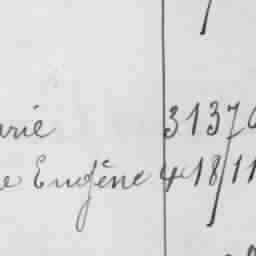 arie 3137
e Eugène 418/11